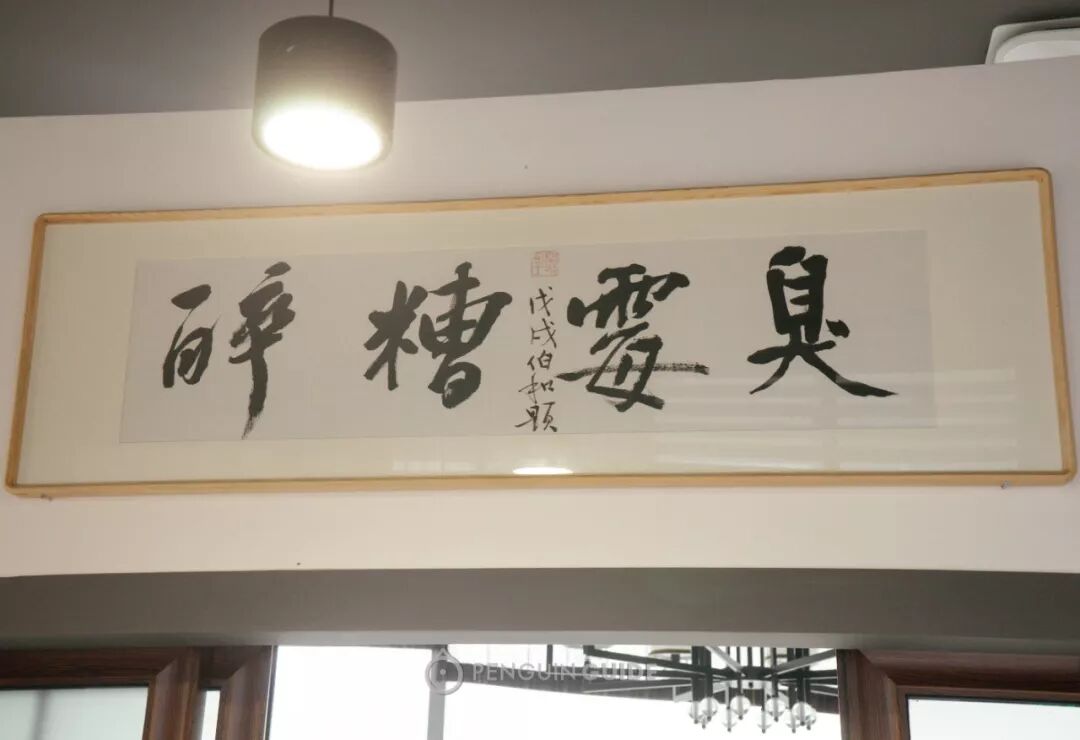 臭霉糟醉
戊戌伯和题
PENGUIN GUIDE